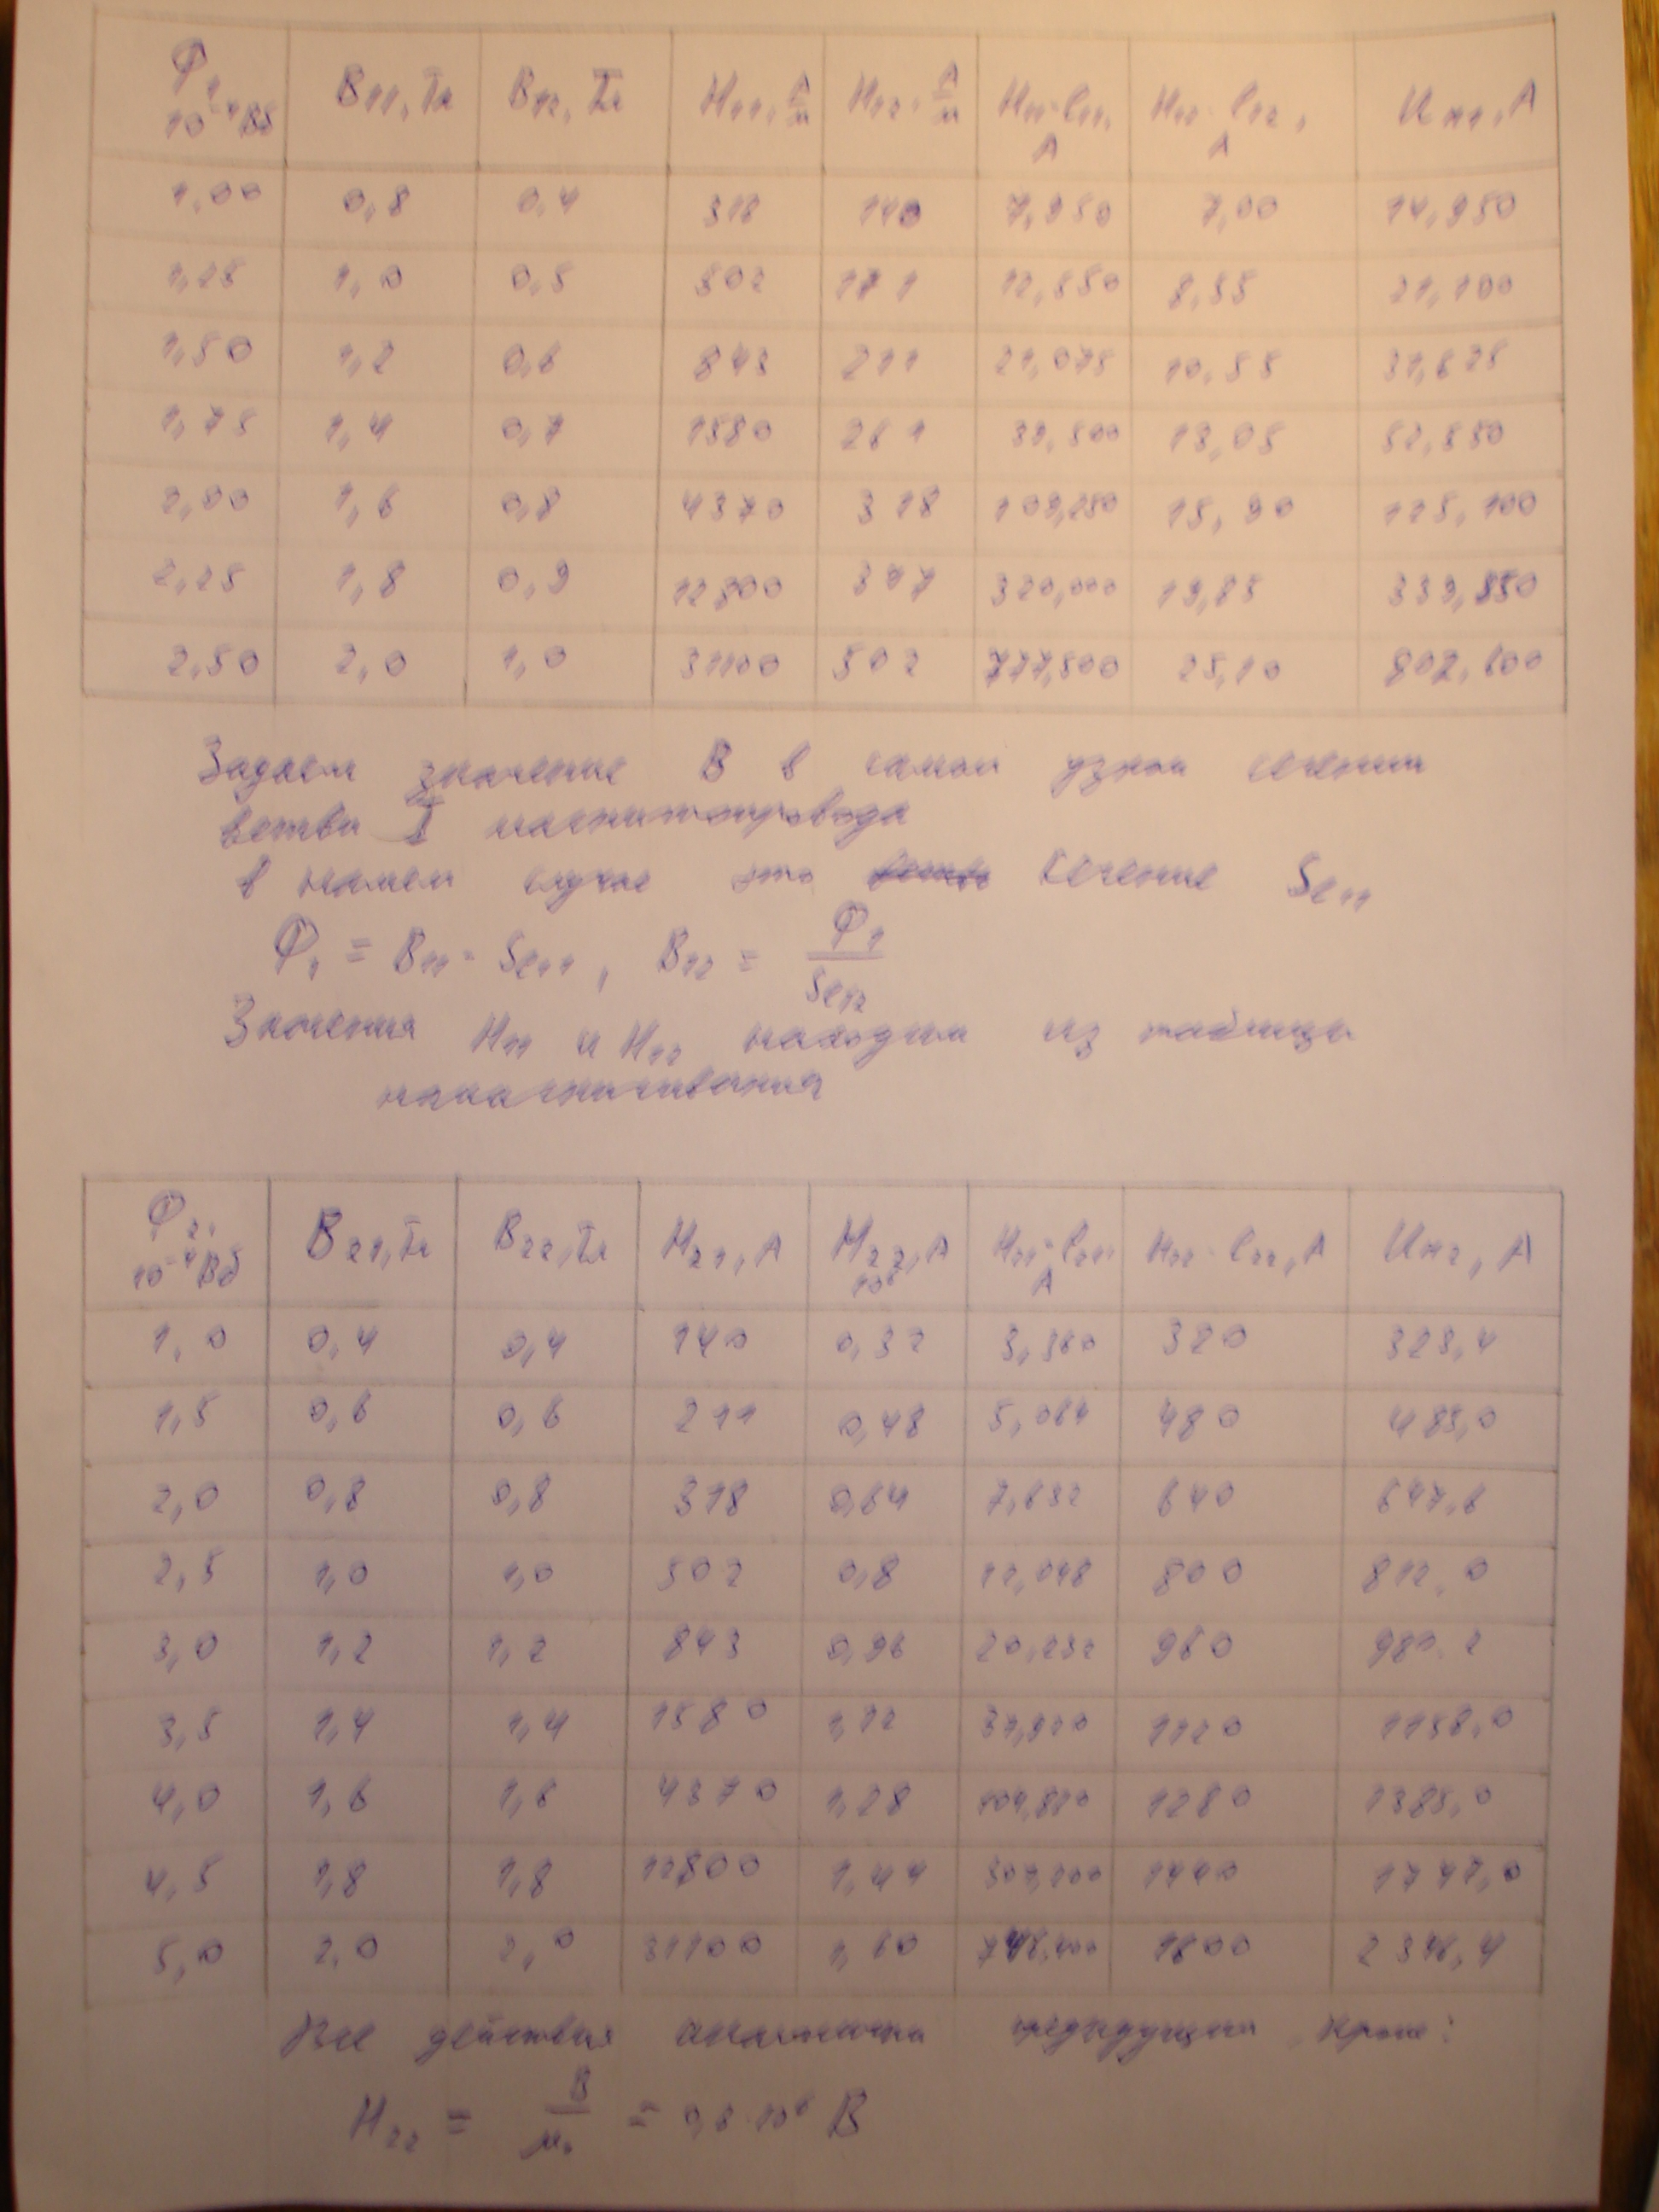 Ф₁, 10⁻⁴ Вб | B₁₁, Тл | B₁₂, Тл | H₁₁, А/м | H₁₂, А/м | H₁₁·l₁₁, А | H₁₂·l₁₂, А | Uм₁, А
1,00 | 0,8 | 0,4 | 318 | 140 | 7,950 | 7,00 | 14,950
1,25 | 1,0 | 0,5 | 502 | 171 | 12,550 | 8,55 | 21,100
1,50 | 1,2 | 0,6 | 843 | 211 | 21,075 | 10,55 | 31,625
1,75 | 1,4 | 0,7 | 1580 | 261 | 39,500 | 13,05 | 52,550
2,00 | 1,6 | 0,8 | 4370 | 318 | 109,250 | 15,90 | 125,100
2,25 | 1,8 | 0,9 | 12800 | 397 | 320,000 | 19,85 | 339,850
2,50 | 2,0 | 1,0 | 31100 | 502 | 777,500 | 25,10 | 802,600
Задаем значение B в самом узком сечении
ветви I магнитопровода
в нашем случае это сечение Sе₁₁
Ф₁ = B₁₁·Sе₁₁, B₁₂ = Ф₁/Sе₁₂
Значения H₁₁ и H₁₂ находим из таблицы
намагничивания
Ф₂, 10⁻⁴ Вб | B₂₁, Тл | B₂₂, Тл | H₂₁, А | H₂₂, А 10⁶ | H₂₁·l₂₁, А | H₂₂·l₂₂, А | Uм₂, А
1,0 | 0,4 | 0,4 | 140 | 0,32 | 3,360 | 320 | 323,4
1,5 | 0,6 | 0,6 | 211 | 0,48 | 5,064 | 480 | 485,0
2,0 | 0,8 | 0,8 | 318 | 0,64 | 7,632 | 640 | 647,6
2,5 | 1,0 | 1,0 | 502 | 0,8 | 12,048 | 800 | 812,0
3,0 | 1,2 | 1,2 | 843 | 0,96 | 20,232 | 960 | 981.2
3,5 | 1,4 | 1,4 | 1580 | 1,12 | 37,920 | 1120 | 1158,0
4,0 | 1,6 | 1,6 | 4370 | 1,28 | 104,880 | 1280 | 1385,0
4,5 | 1,8 | 1,8 | 12800 | 1,44 | 307,200 | 1440 | 1747,0
5,0 | 2,0 | 2,0 | 31100 | 1,60 | 746,400 | 1600 | 2346,4
Все действия аналогичны предыдущим кроме:
H₂₂ = B/μ₀ = 0,8·10⁶ B